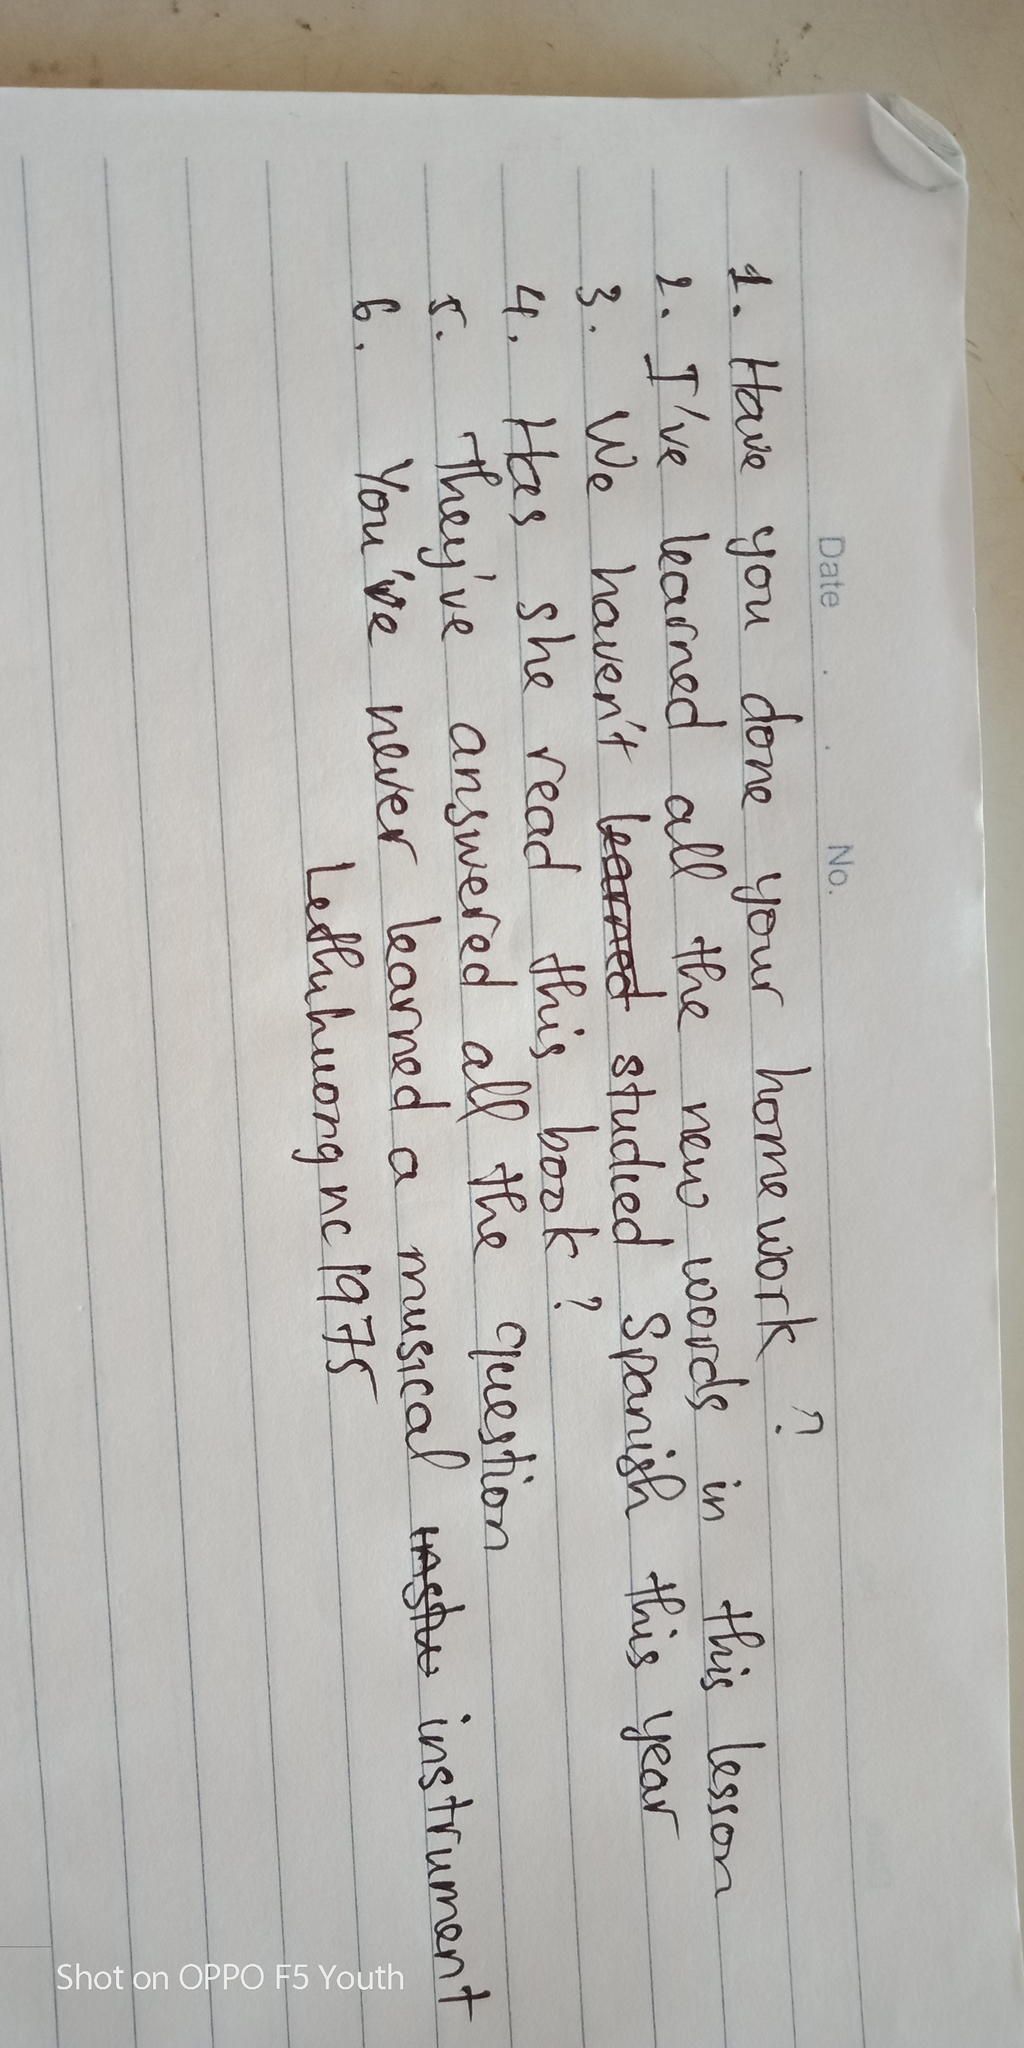 Date . . No.
1. Have you done your homework ?
2. I've learned all the new words in this lesson
3. We haven't learned studied Spanish this year
4. Has she read this book ?
5. They've answered all the question
6. You've never learned a musical instru instrument
Lethuhuong nc 1975
Shot on OPPO F5 Youth